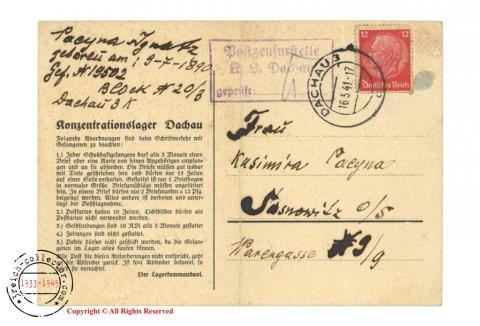 Pacyna Ignatz
geboren am: 9-7-1890
Gef. N 19502
Block N 20/3
Dachau 3 K
Postzensurstelle
K. L. Dachau
geprüft:
DACHAU 3
16.5.41.-17
12 12
Deutsches Reich
Konzentrationslager Dachau
Folgende Anordnungen sind beim Schriftverkehr mit
Gefangenen zu beachten:
1.) Jeder Schutzhaftgefangene darf alle 3 Monate einen
Brief oder eine Karte von seinen Angehörigen empfan-
gen und an sie absenden. Die Briefe müssen gut lesbar
mit Tinte geschrieben sein und dürfen nur 15 Zeilen
auf einer Seite enthalten. Gestattet ist nur 1 Briefbogen
in normaler Größe. Briefumschläge müssen ungefüttert
sein. In einem Brief dürfen nur 2 Briefmarken a 12 Pfg.
beigelegt werden. Alles andere ist verboten und unter-
liegt der Beschlagnahme.
2.) Postkarten haben 10 Zeilen. Lichtbilder dürfen als
Postkarten nicht verwendet werden.
3.) Geldsendungen sind 10 RM alle 3 Monate gestattet
4.) Zeitungen sind nicht gestattet.
5.) Pakete dürfen nicht geschickt werden, da die Gefan-
genen im Lager alles kaufen können.
Alle Post die diesen Anforderungen nicht entspricht, geht
an die Absender zurück. Ist kein Absender bekannt, so
wird sie vernichtet.
Der Lagerkommandant.
Frau
Kasimira Pacyna
Sosnowitz O/S
Warengasse N 9/9
*reich-collector.com*
1933-1945
Copyright © All Rights Reserved